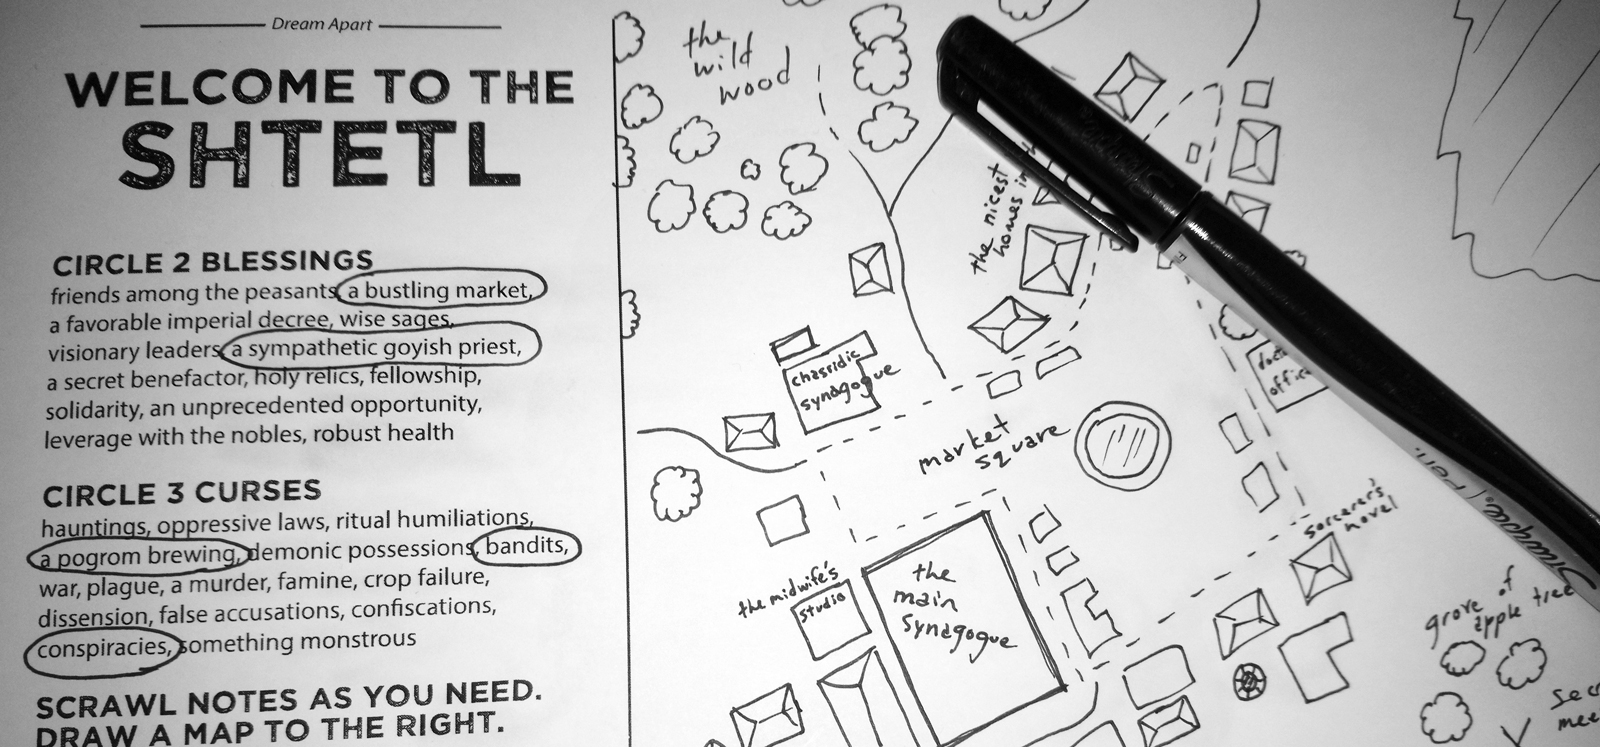 Dream Apart
WELCOME TO THE
SHTETL
CIRCLE 2 BLESSINGS
friends among the peasants, a bustling market,
a favorable imperial decree, wise sages,
visionary leaders, a sympathetic goyish priest,
a secret benefactor, holy relics, fellowship,
solidarity, an unprecedented opportunity,
leverage with the nobles, robust health
CIRCLE 3 CURSES
hauntings, oppressive laws, ritual humiliations,
a pogrom brewing, demonic possessions, bandits,
war, plague, a murder, famine, crop failure,
dissension, false accusations, confiscations,
conspiracies, something monstrous
SCRAWL NOTES AS YOU NEED.
DRAW A MAP TO THE RIGHT.
the
wild
wood
the nicest
homes in
chasidic
synagogue
market
square
office
sorcerer's
hovel
the midwife's
studio
the
main
synagogue
grove of
apple tree
Pen.